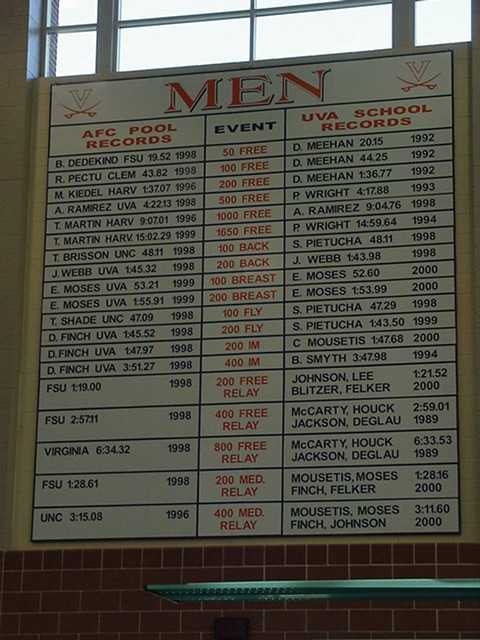 MEN
AFC POOL RECORDS EVENT UVA SCHOOL RECORDS
B. DEDEKIND FSU 19.52 1998 50 FREE D. MEEHAN 20.15 1992
R. PECTU CLEM 43.82 1998 100 FREE D. MEEHAN 44.25 1992
M. KIEDEL HARV 1:37.07 1996 200 FREE D. MEEHAN 1:36.77 1992
A. RAMIREZ UVA 4:22.13 1998 500 FREE P. WRIGHT 4:17.88 1993
T. MARTIN HARV 9:07.01 1996 1000 FREE A. RAMIREZ 9:04.76 1998
T. MARTIN HARV. 15:02.29 1999 1650 FREE P. WRIGHT 14:59.64 1994
T. BRISSON UNC 48.11 1998 100 BACK S. PIETUCHA 48.11 1998
J. WEBB UVA 1:45.32 1998 200 BACK J. WEBB 1:43.98 1998
E. MOSES UVA 53.21 1999 100 BREAST E. MOSES 52.60 2000
E. MOSES UVA 1:55.91 1999 200 BREAST E. MOSES 1:53.99 2000
T. SHADE UNC 47.09 1998 100 FLY S. PIETUCHA 47.29 1998
D. FINCH UVA 1:45.52 1998 200 FLY S. PIETUCHA 1:43.50 1999
D. FINCH UVA 1:47.97 1998 200 IM C MOUSETIS 1:47.68 2000
D. FINCH UVA 3:51.27 1998 400 IM B. SMYTH 3:47.98 1994
FSU 1:19.00 1998 200 FREE RELAY JOHNSON, LEE 1:21.52
BLITZER, FELKER 2000
FSU 2:57.11 1998 400 FREE RELAY McCARTY, HOUCK 2:59.01
JACKSON, DEGLAU 1989
VIRGINIA 6:34.32 1998 800 FREE RELAY McCARTY, HOUCK 6:33.53
JACKSON, DEGLAU 1989
FSU 1:28.61 1998 200 MED. RELAY MOUSETIS, MOSES 1:28.16
FINCH, FELKER 2000
UNC 3:15.08 1996 400 MED. RELAY MOUSETIS, MOSES 3:11.60
FINCH, JOHNSON 2000